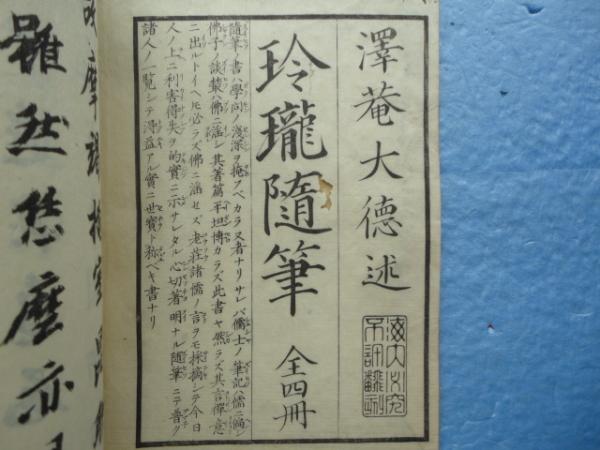 澤菴大德述
玲瓏隨筆
全四冊
隨筆ノ書ハ學問ノ淺深ヲ掩フベカラザル者ナリサレバ儒士ノ筆記ハ儒ニ偏シ
佛子ノ談叢ハ佛ニ淫シ其著篇平坦博カラズ此書ヤ然ラズ其言禪意
ニ出ルトイヘドモ必ラズ佛ニ涵セズ老荘諸儒ノ言ヲモ採摘シテ今日
人ノ上ニ利害得失ヲ的實ニ示サレタル心切著明ナル隨筆ニテ普ク
諸人ノ一覧シテ得益アル實ニ世寳ト称ベキ書ナリ
雖然恁麼亦